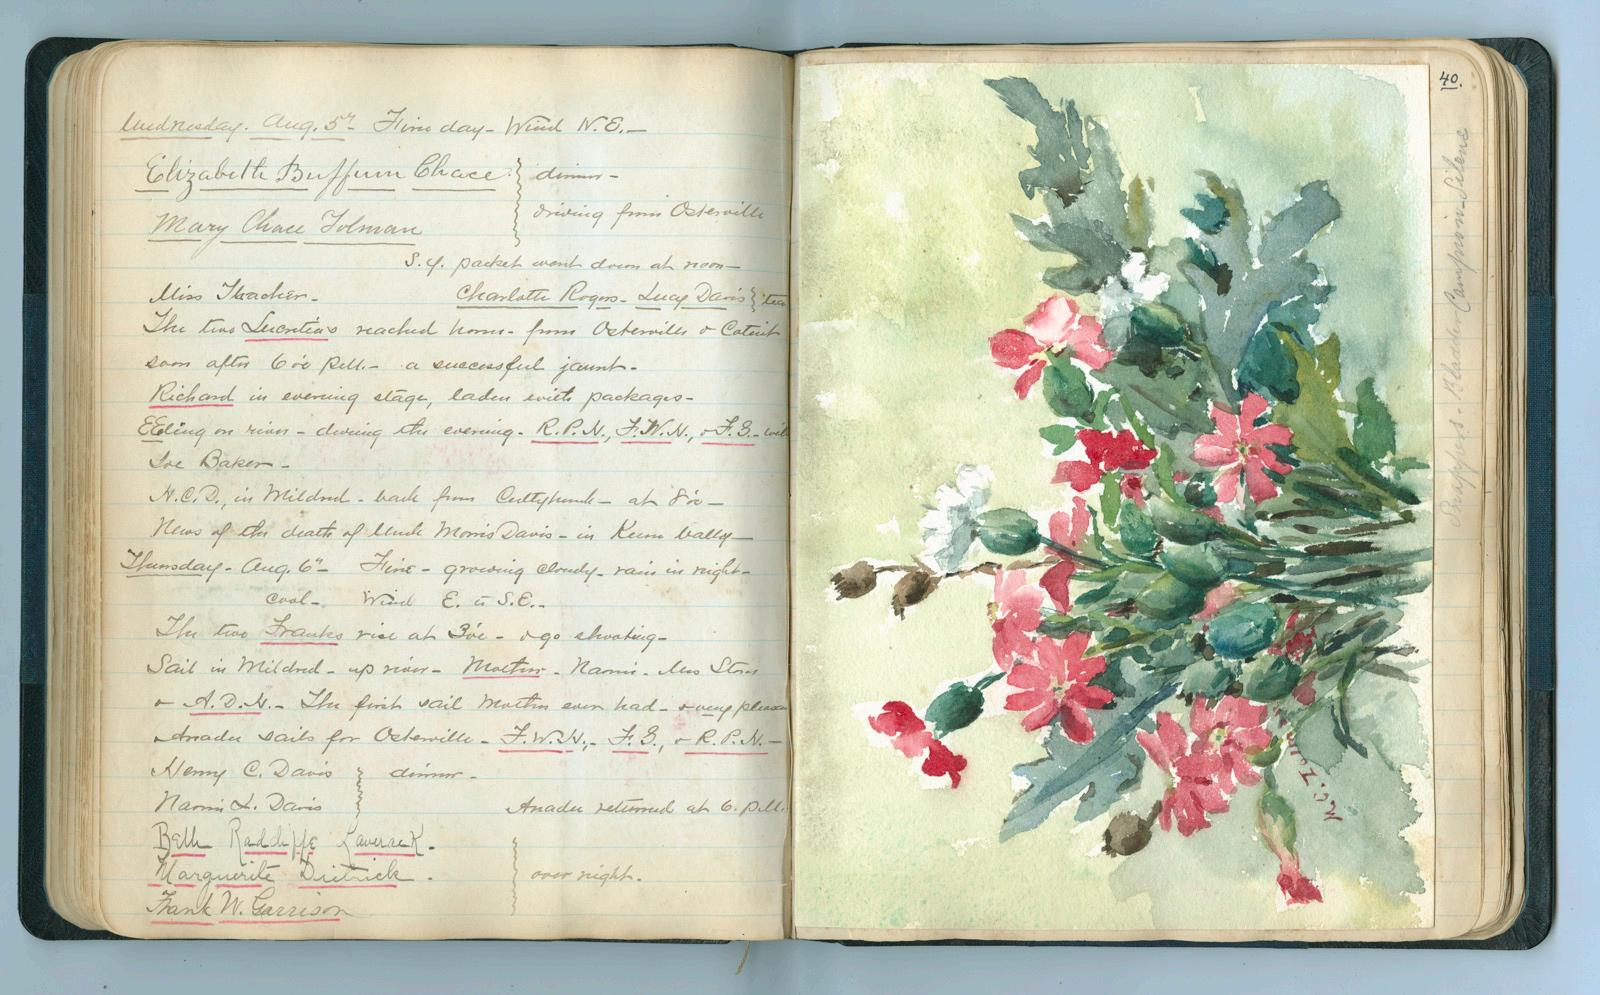 Wednesday. Aug. 5th Fine day - Wind N.E. -
Elizabeth Buffum Chace } dinner -
driving from Osterville
Mary Chace Tolman
S.Y. packet went down at noon -
Miss Thacher - Charlotte Rogers - Lucy Davis } tea
The two Lucretias reached home - from Osterville & Cotuit
soon after 6 o'c P.M. - a successful jaunt -
Richard in evening stage, laden with packages -
EEling on river - during the evening - R.P.H., F.W.H., & F.G. - with
Joe Baker -
H.C.D., in Mildred - back from Cuttyhunk - at 8 o'c -
News of the death of Uncle Morris Davis - in Keene Valley -
Thursday - Aug. 6th Fine - growing cloudy - rain in night -
cool - Wind E. to S.E. -
The two Franks rise at 3 o'c - & go shooting -
Sail in Mildred - up river - Mother - Naomi - Miss Stone
& A.D.H. - The first sail Mother ever had - & very pleasant
Anadee sails for Osterville - F.W.H., - F.G., & R.P.H. -
Henry C. Davis } dinner -
Naomi L. Davis Anadee returned at 6. P.M.
Belle Radcliffe Laverack.
Marguerite Dietrick. } over night.
Frank W. Garrison
40.
Snappers - Bladder Campion - Silene
M.C. Tolman